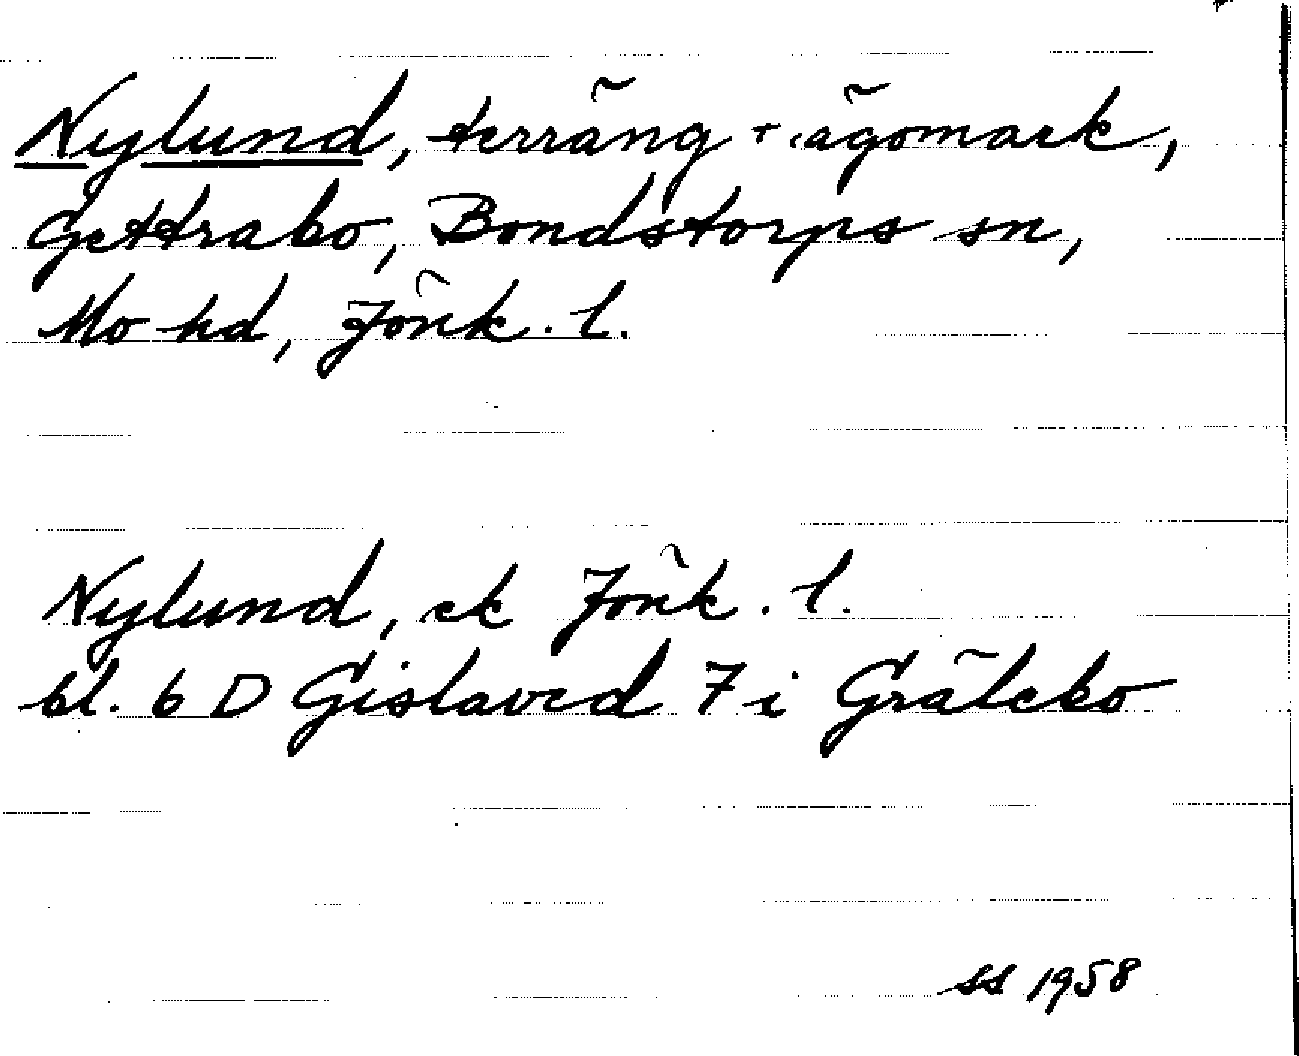 Nylund, terräng + ägomark,
Gettrabo, Bondstorps sn,
Mo hd, Jönk. l.
Nylund, ek Jönk. l.
bl. 6 D Gislaved 7 i Grälebo
SS 1958